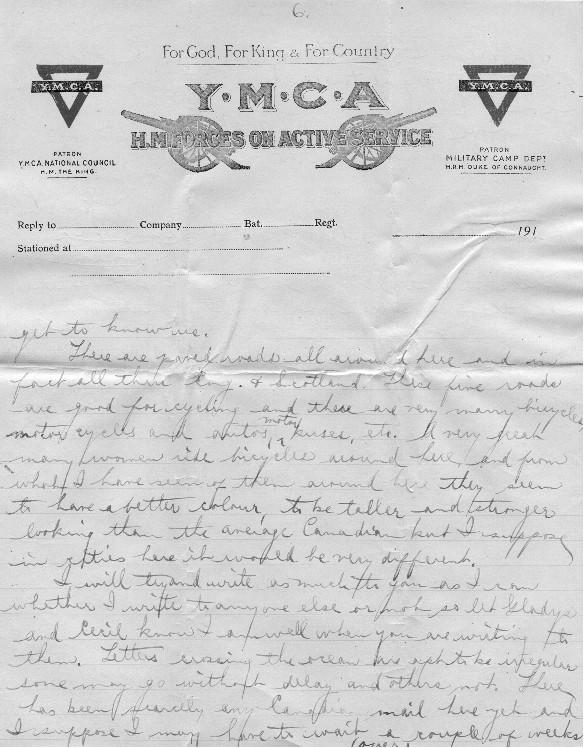 6.
For God, For King & For Country
Y·M·C·A
Y.M.C.A.
Y.M.C.A.
H.M. FORCES ON ACTIVE SERVICE
PATRON
Y.M.C.A. NATIONAL COUNCIL
H.M. THE KING.
PATRON
MILITARY CAMP DEPT
H.R.H. DUKE OF CONNAUGHT.
Reply to Company Bat. Regt.
Stationed at
191
get to know me.
There are paved roads all around here and in
fact all thru Eng. & Scotland. These fine roads
are good for cycling and there are very many bicycles,
motor cycles and autos, motor buses, etc. A very great
many women ride bicycles around here, and from
what I have seen of them around here they seem
to have a better colour, to be taller and stronger
looking than the average Canadian but I suppose
in cities here it would be very different.
I will try and write as much to you as I can
whether I write to anyone else or not so let Gladys
and Cecil know I am well when you are writing to
them. Letters crossing the ocean are apt to be irregular
some may go without delay and others not. There
has been scarcely any Canadian mail here yet and
I suppose I may have to wait a couple of weeks
(over)